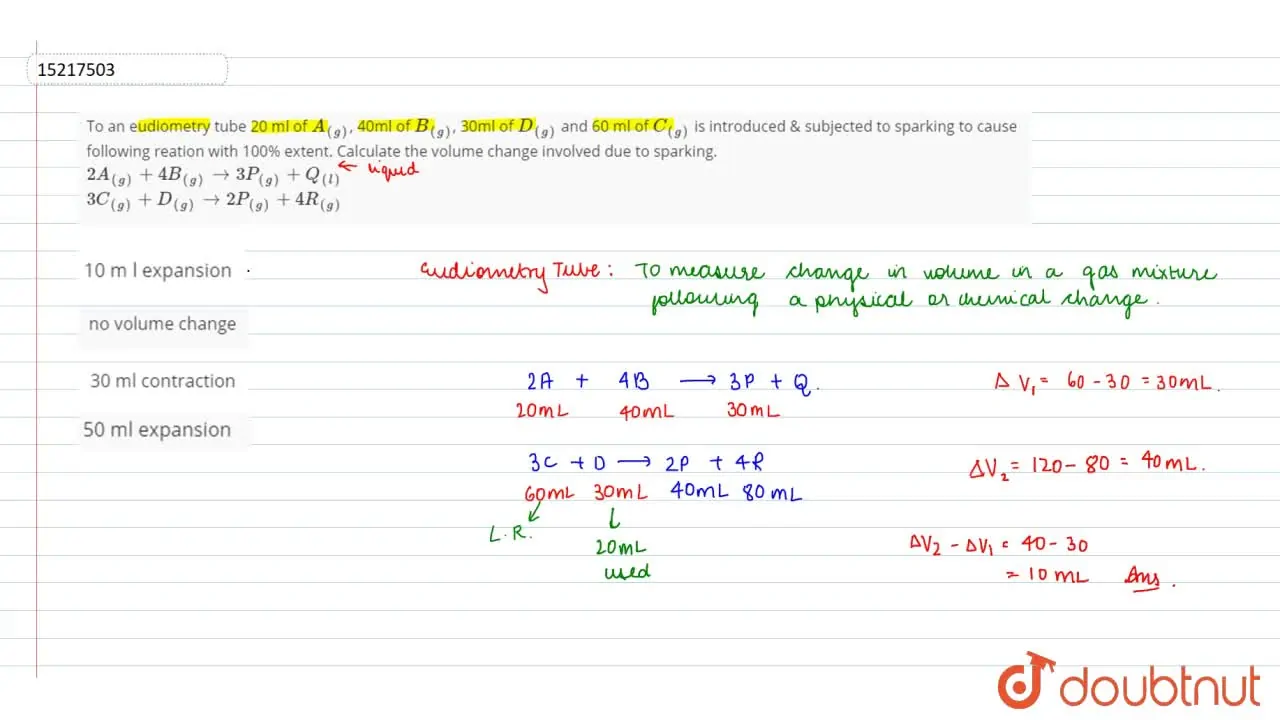 15217503
To an eudiometry tube 20 ml of A(g), 40ml of B(g), 30ml of D(g) and 60 ml of C(g) is introduced & subjected to sparking to cause
following reation with 100% extent. Calculate the volume change involved due to sparking.
2A(g) + 4B(g) → 3P(g) + Q(l) ← liquid
3C(g) + D(g) → 2P(g) + 4R(g)
10 m l expansion
Eudiometry Tube : To measure change in volume in a gas mixture
following a physical or chemical change.
no volume change
30 ml contraction
2A + 4B → 3P + Q. Δ V₁ = 60 - 30 = 30mL.
20mL 40mL 30mL
50 ml expansion
3C + D → 2P + 4R ΔV₂ = 120 - 80 = 40mL.
60mL 30mL 40mL 80mL
L.R.
20mL
used
ΔV₂ - ΔV₁ = 40 - 30
= 10 mL Ans.
doubtnut